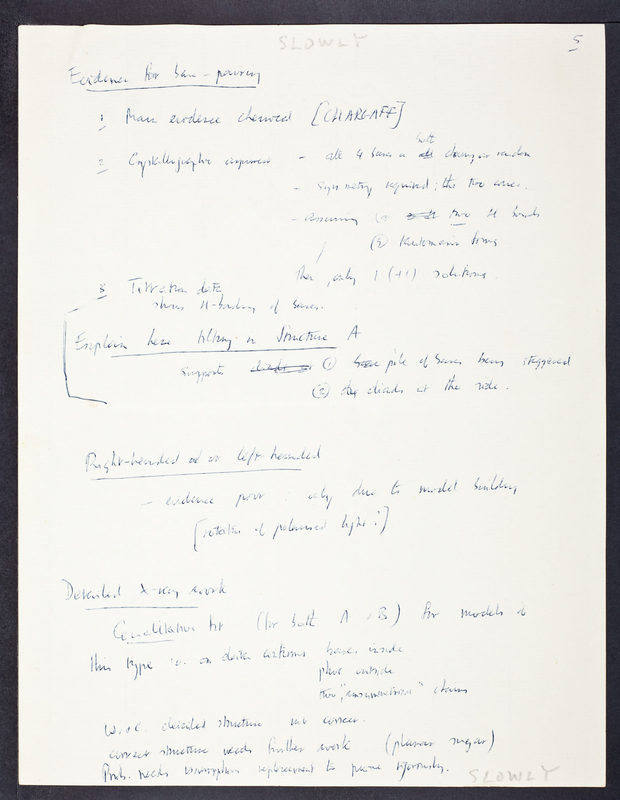 SLOWLY
5
Evidence for base-pairing
1 Main evidence chemical [CHARGAFF]
2 Crystallographic argument - all 4 bases on both chains, in random
- symmetry required; the two ones.
- Assuming (1) two H bonds
(2) tautomeric forms
then, only 1 (+1) solutions.
3 Titration data
shows H-bonding of bases.
Explain here tilting in Structure A
supports (1) pile of bases being staggered
(2) diads at the side.
Right-handed or left handed
- evidence poor: only due to model building
[rotation of polarised light?]
Detailed X-ray work
Qualitative fit (for both A + B) for models of
this type i.e. on data confirms bases inside
phos outside
two, chains
W. & C. detailed structure not correct.
correct structure needs further work (planar sugar)
Prob. needs isomorphous replacement to prove rigorously.
SLOWLY